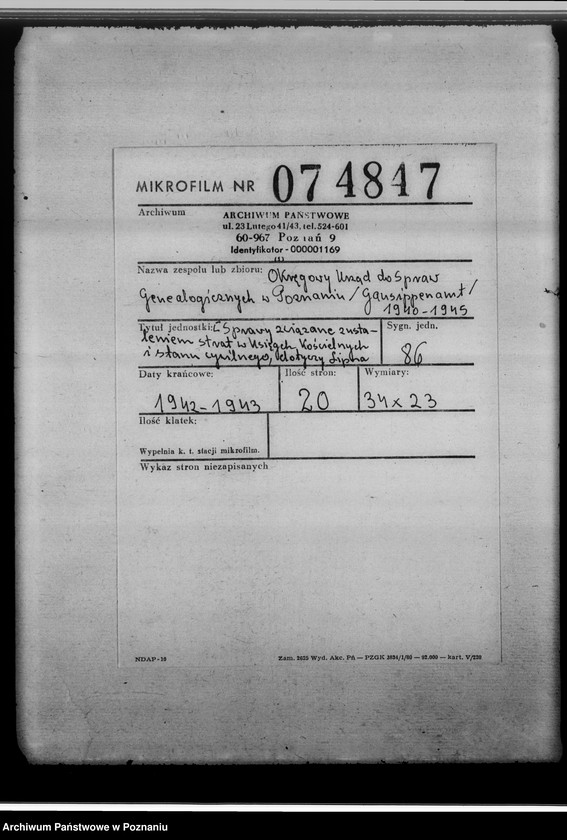 MIKROFILM NR 074847
Archiwum
ARCHIWUM PAŃSTWOWE
ul. 23 Lutego 41/43, tel. 524-601
60-967 Poznań 9
Identyfikator - 000001169
(1)
Nazwa zespołu lub zbioru: Okręgowy Urząd do Spraw
Genealogicznych w Poznaniu /Gausippenamt/
1940-1945
Tytuł jednostki: [Sprawy związane z usta-
leniem strat w Księgach Kościelnych
i stanu cywilnego, dotyczy Lipna
Sygn. jedn.
86
Daty krańcowe:
1942-1943
Ilość stron:
20
Wymiary:
34 x 23
Ilość klatek:
Wypełnia k. t. stacji mikrofilm.
Wykaz stron niezapisanych
NDAP-19
Zam. 2635 Wyd. Akc. Pń — PZGK — kart. V/220
Archiwum Państwowe w Poznaniu